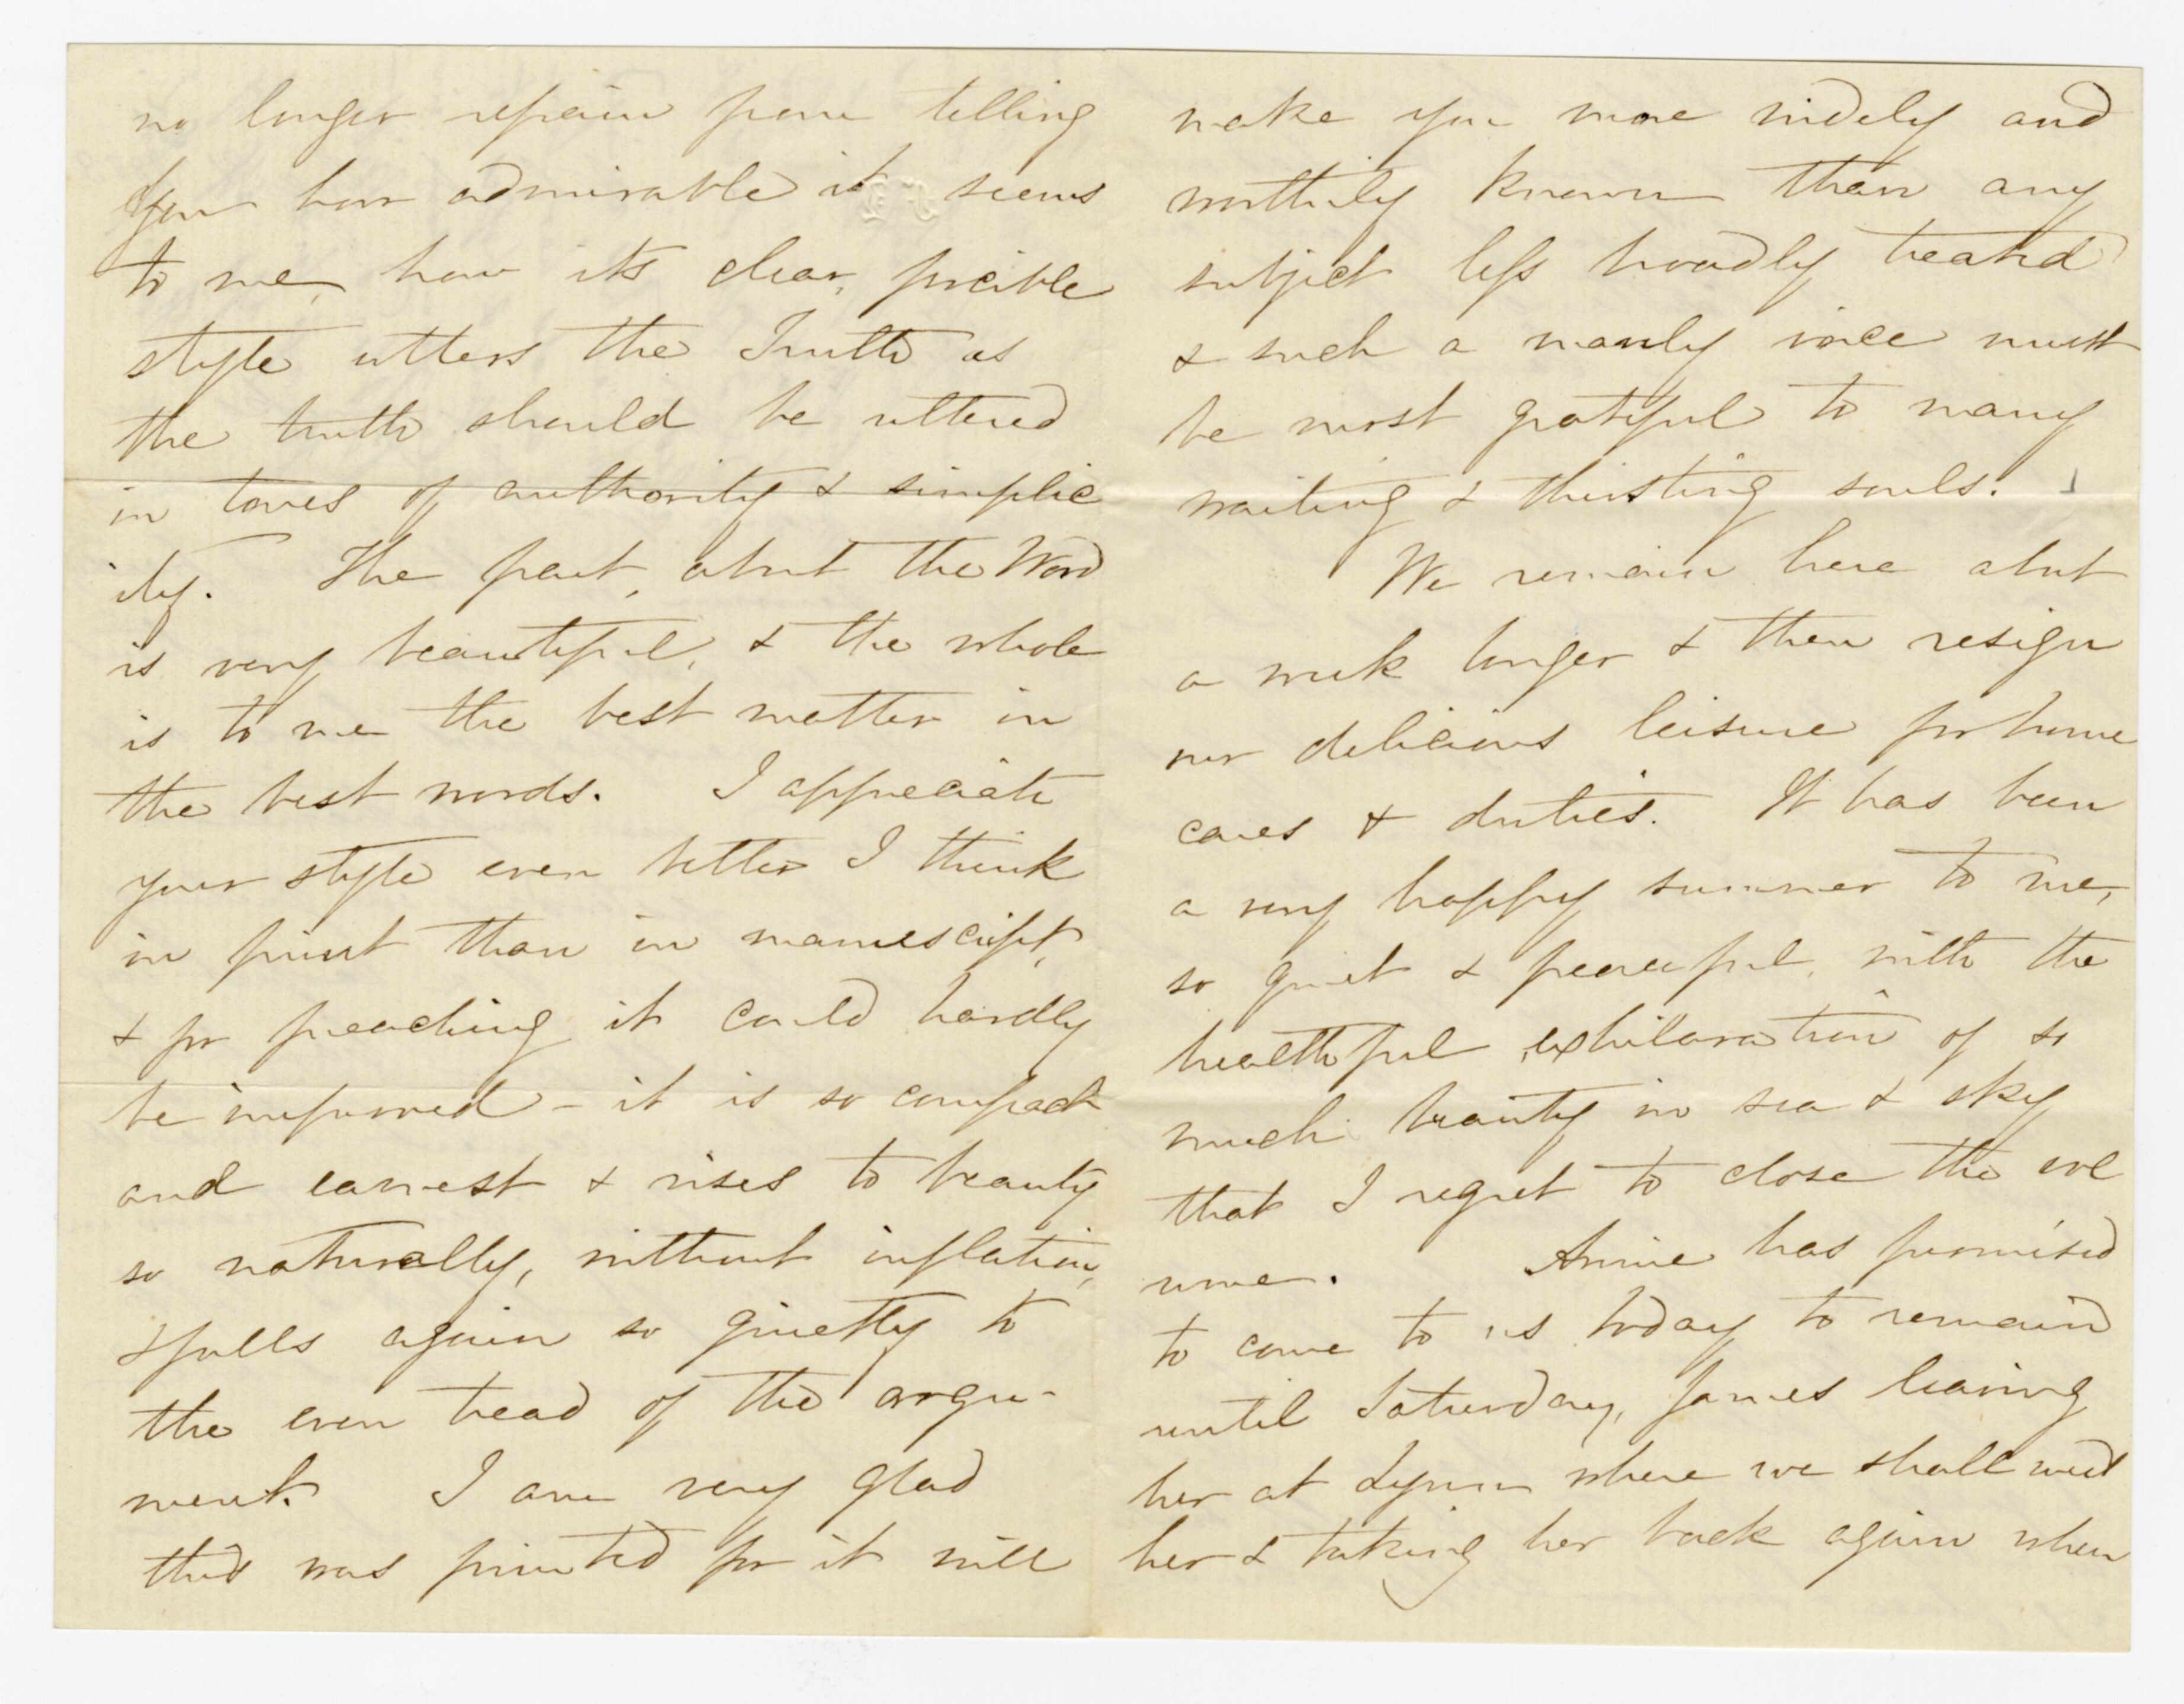 no longer refrain from telling
you how admirable it seems
to me, how its clear, forcible
style utters the Truth as
the truth should be uttered
in tones of authority & simplic
ity. The part, about the Word
is very beautiful, & the whole
is to me the best matter in
the best words. I appreciate
your style even better I think
in print than in manuescript,
& for preaching it could hardly
be improved - it is so compact
and earnest & rises to beauty
so naturally, without inflation,
& falls again so quietly to
the even tread of the argu-
ment. I am very glad
this was printed for it will
make you more widely and
worthily known than any
subject less broadly treated
& such a manly voice must
be most grateful to many
waiting & thirsting souls.
We remain here about
a week longer & then resign
our delicious leisure for home
cares & duties. It has been
a very happy summer to me,
so quiet & peaceful, with the
healthful exhilaration of so
much beauty in sea & sky
that I regret to close the vol
ume. Annie has promised
to come to us today to remain
until Saturday, James leaving
her at Lynn where we shall meet
her & taking her back again when